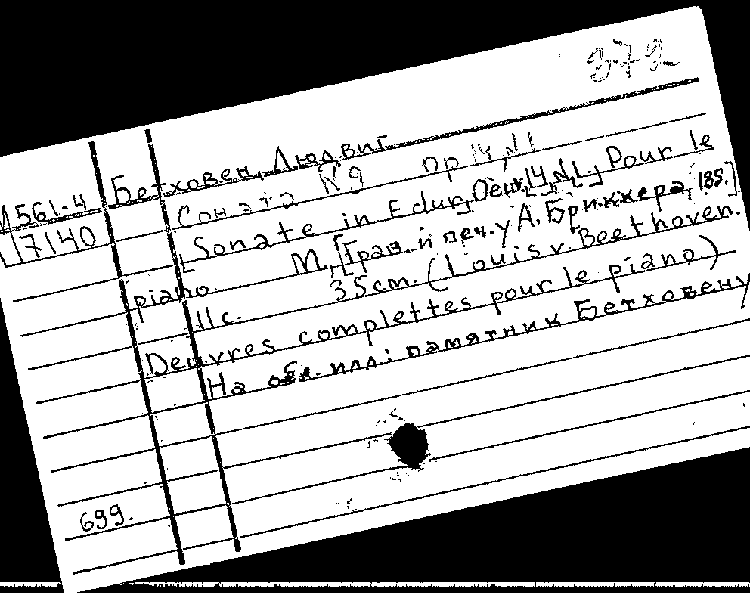 372
Бетховен, Людвиг
561-4
17140
Соната №9 op 14, №1
[Sonate in E dur, Oeuv. 14 №1, Pour le
piano. М., [Грав. и печ. у А. Бриккера, 185.]
11 с. 35 см. (Louis v. Beethoven.
Oeuvres complettes pour le piano)
На обл. илл: памятник Бетховену
699.